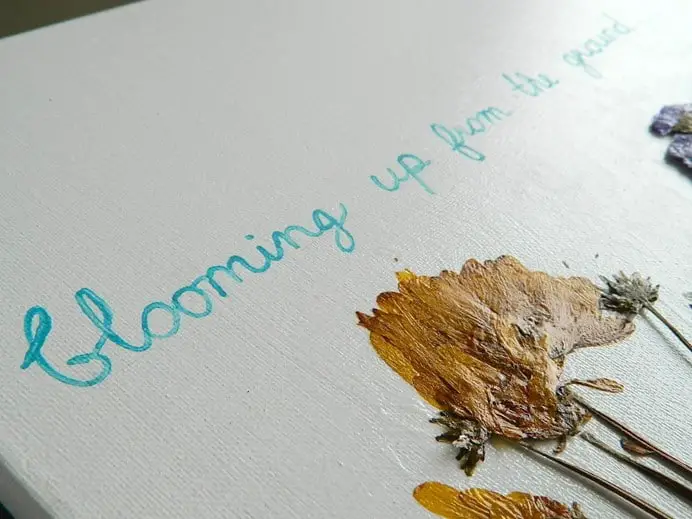 blooming up from the ground